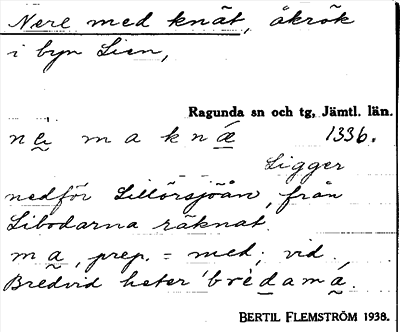 Nere med knät, åkrök
i byn Lien,
Ragunda sn och tg, Jämtl. län.
ne m a k n æ 1336.
Ligger
nedför Lillörsjöån, från
Libodarna räknat.
m a, prep. = med; vid.
Bredvid heter 'brèdamá.
BERTIL FLEMSTRÖM 1938.